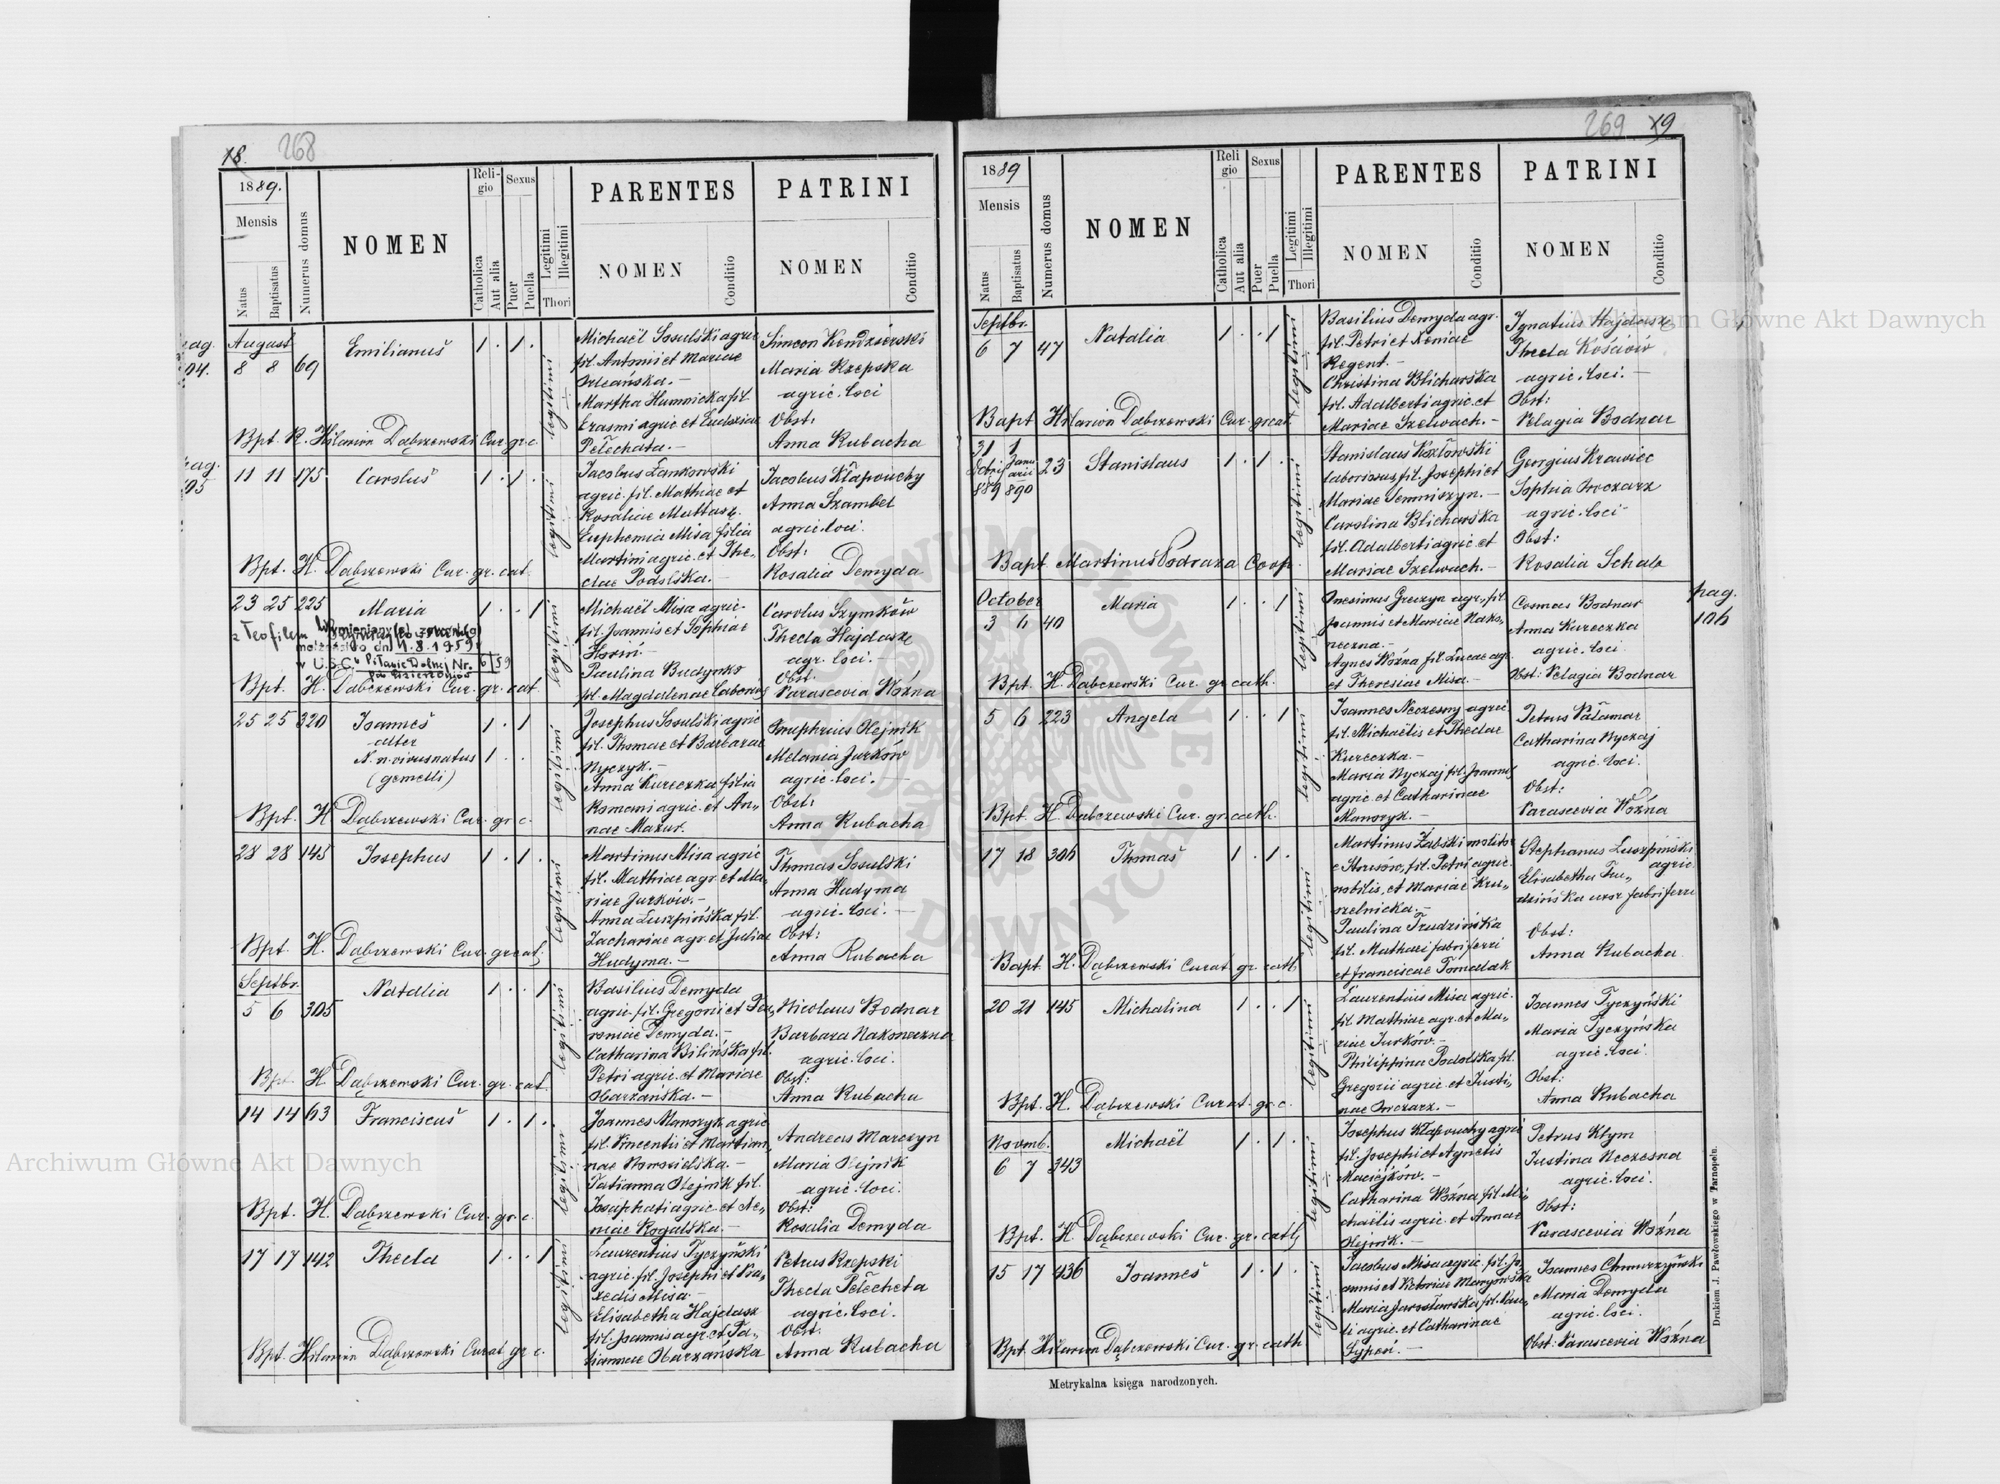 18. 268
1889.
Mensis
Natus
Baptisatus
Numerus domus
NOMEN
Reli-
gio
Catholica
Aut alia
Sexus
Puer
Puella
Legitimi
Illegitimi
Thori
PARENTES
NOMEN
Conditio
PATRINI
NOMEN
Conditio
pag.
104.
August
8 8 69
Emilianus
1 . 1 .
legitimi
Michaël Sosulski agric.
fil. Antonii et Mariae
Orleańska. —
Martha Humnicka fil.
Erasmi agric et Eudoxiae
Pełechata. —
Simeon Kondzierski
Maria Rzepska
agric. loci
Obst:
Anna Rubacha
Bpt R. Hilarion Dąbczewski Cur gr c.
pag.
105
11 11 175
Carolus
1 . 1 .
legitimi
Jacobus Lankowski
agric. fil. Mathiae et
Rosaliae Mattasz.
Euphemia Misa filia
Martini agric. et The-
clae Podolska. —
Jacobus Kłapouchy
Anna Szambel
agric. loci.
Obst:
Rosalia Demyda
Bpt. H. Dąbczewski Cur. gr. cat.
23 25 225
Maria
1 . . 1
legitimi
z Teofilem
małżeństwo dn 4.8.1959
w U.S.C. Piławie Dolnej Nr. 6/59
Michaël Misa agric.
fil. Joannis et Sophiae
Paulina Budynko
fil. Magdalenae laborios.
Carolus Szymków
Thecla Hajdasz
agr. loci. —
Obst:
Parascevia Woźna
Bpt. H. Dąbczewski Cur. gr. cat.
25 25 320
Joannes
alter
N. n. vivus natus
(gemelli)
1 . 1
1 . .
legitimi
Josephus Sosulski agric
fil. Thomae et Barbarae
Nyczyk. —
Anna Kureczka filia
Romani agric. et An-
nae Mazur.
Onuphrius Olejnik
Melania Jurków
agric. loci. —
Obst:
Anna Rubacha
Bpt. H Dąbczewski Cur. gr c.
28 28 145
Josephus
1 . 1 .
legitimi
Martinus Misa agric
fil. Mathiae agr. et Ma-
riae Jurków. —
Anna Luszpińska fil.
Zachariae agr. et Juliae
Hudyma. —
Thomas Sosulski
Anna Hudyma
agric. loci. —
Obst:
Anna Rubacha
Bpt. H. Dąbczewski Cur. gr cat.
Septbr.
5 6 305
Natalia
1 . . 1
legitimi
Basilius Demyda
agric. fil. Gregorii et Pa-
roniae Demyda. —
Catharina Bilińska fil.
Petri agric. et Mariae
Obarzańska. —
Nicolaus Bodnar
Barbara Nakoneczna
agric. loci.
Obst:
Anna Rubacha
Bpt. H Dąbczewski Cur. gr. cat.
14 14 63
Franciscus
1 . 1 .
legitimi
Joannes Manoryk agric
fil. Vincentii et Martian-
nae Nowosielska. —
Tatianna Olejnik fil.
Josaphati agric. et Xe-
niae Rogalska. —
Andreas Marczyn
Maria Olejnik
agric. loci.
Obst:
Rosalia Demyda
Bpt. H. Dąbczewski Cur. gr. c.
17 17 142
Thecla
1 . . 1
legitimi
Laurentius Tyczyński
agric. fil. Josephi et Pra-
xedis Misa. —
Elisabetha Hajdasz
fil. Joannis agr. et Ta-
tiannae Obarzańska
Petrus Rzepski
Thecla Pełecheta
agric. loci.
Obst:
Anna Rubacha
Bpt. Hilarion Dąbczewski Curat. gr c.
269 19
1889
Mensis
Natus
Baptisatus
Numerus domus
NOMEN
Reli
gio
Catholica
Aut alia
Sexus
Puer
Puella
Legitimi
Illegitimi
Thori
PARENTES
NOMEN
Conditio
PATRINI
NOMEN
Conditio
Septbr.
6 7 47
Natalia
1 . . 1
legitimi
Basilius Demyda agr.
fil. Petri et Xeniae
Regent. —
Christina Blicharska
fil. Adalberti agric. et
Mariae Szelwach. —
Ignatius Hajdasz
Thecla Kościów
agric. loci. —
Obst:
Pelagia Bodnar
Bapt Hilarion Dąbczewski Cur. gr cat.
31 1
Januarii
889 890
23
Stanislaus
1 . 1 .
legitimi
Stanislaus Kozłowski
laboriosus, fil. Josephi et
Mariae Semniszyn. —
Carolina Blicharska
fil. Adalberti agric. et
Mariae Szelwach. —
Georgius Krawiec
Sophia Owczarz
agric. loci —
Obst:
Rosalia Schab
Bapt Martinus Podraza Coop.
October
3 4 40
Maria
1 . . 1
legitimi
Onesimus Greczyn agr. fil.
Joannis et Mariae Nako-
neczna. —
Agnes Woźna fil. Lucae agr.
et Theresiae Misa. —
Cosmas Bodnar
Anna Kureczka
agric. loci
Obst: Pelagia Bodnar
pag.
106
Bpt. H. Dąbczewski Cur. gr cath.
5 6 223
Angela
1 . . 1
legitimi
Joannes Neczesny agric.
fil. Michaëlis et Theclae
Kureczka. —
Maria Nyczaj fil. Joannis
agric. et Catharinae
Manoryk. —
Petrus Pałamar
Catharina Nyczaj
agric. loci.
Obst:
Parascevia Woźna
Bpt. H Dąbczewski Cur. gr. cath.
17 18 306
Thomas
1 . 1 .
legitimi
Martinus Żabski molitor
e Strusów, fil. Petri agric.
nobilis, et Mariae Kru-
szelnicka. —
Paulina Trudzińska
fil. Mathaei fabri ferri
et Franciscae Tomadak
Stephanus Luszpiński
agric.
Elisabetha Tru-
dzińska uxor fabri ferri
Obst:
Anna Rubacha
Bapt. H. Dąbczewski Curat. gr. cath.
20 21 145
Michalina
1 . . 1
legitimi
Laurentius Misa agric.
fil. Mathiae agr. et Ma-
riae Jurków. —
Philippina Podolska fil.
Gregorii agric. et Justi-
nae Owczarz. —
Joannes Tyczyński
Maria Tyczyńska
agric. loci
Obst:
Anna Rubacha
Bpt. H. Dąbczewski Curat. gr. c.
Novmb.
6 7 343
Michaël
1 . 1 .
legitimi
Josephus Kłapouchy agric
fil. Josephi et Agnetis
Maciejków. —
Catharina Woźna fil. Mi-
chaëlis agric. et Annae
Olejnik. —
Petrus Kłym
Justina Neczesna
agric. loci.
Obst:
Parascevia Woźna
Bpt. H. Dąbczewski Cur. gr. cath.
15 17 436
Joannes
1 . 1 .
legitimi
Jacobus Misa agric. fil. Jo-
annis et
Maria Jarosławska fil. Pau-
li agric. et Catharinae
Sypeń. —
Joannes Chmurzyński
Mania Demyda
agric. loci.
Obst: Parascevia Woźna
Bpt. Hilarion Dąbczewski Cur. gr. cath
Metrykalna księga narodzonych.
Drukiem J. Pawłowskiego w Tarnopolu.
Archiwum Główne Akt Dawnych
Archiwum Główne Akt Dawnych
ARCHIWUM GŁÓWNE AKT DAWNYCH